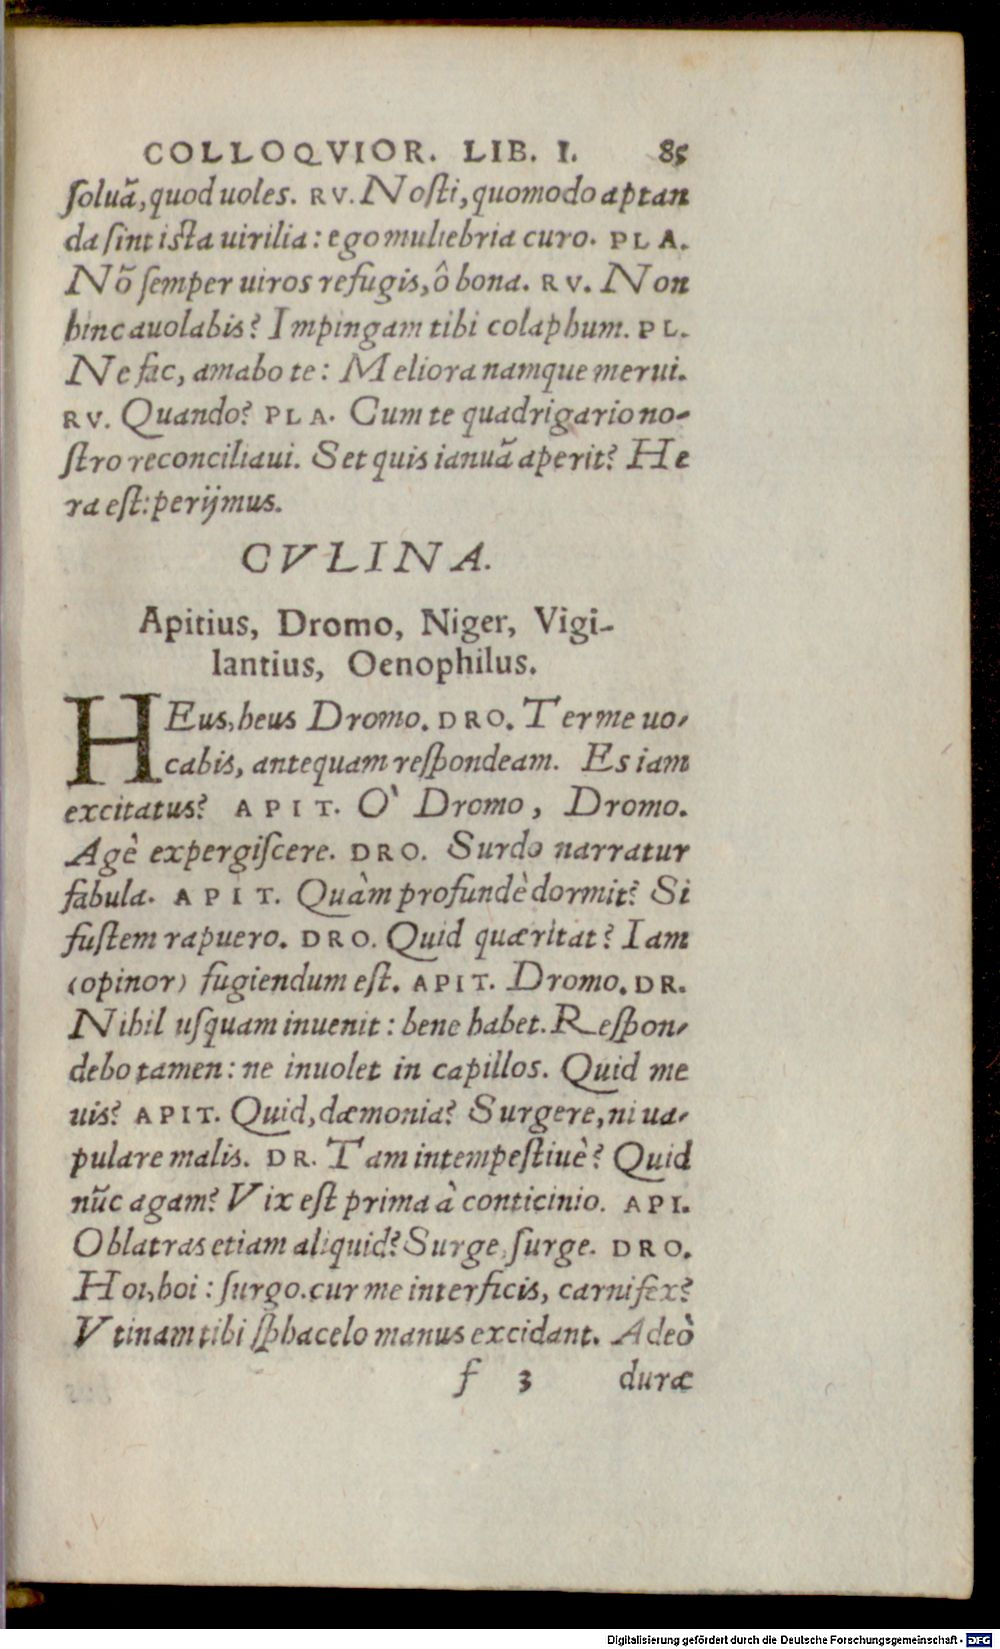 COLLOQVIOR. LIB. I. 85
ſoluā, quod uoles. RV. Noſti, quomodo aptan
da ſint iſta uirilia: ego muliebria curo. PLA.
Nō ſemper uiros refugis, ô bona. RV. Non
hinc auolabis? Impingam tibi colaphum. PL.
Ne fac, amabo te: Meliora namque merui.
RV. Quando? PLA. Cum te quadrigario no-
ſtro reconciliaui. Set quis ianuā aperit? He
ra eſt: perijmus.
CVLINA.
Apitius, Dromo, Niger, Vigi-
lantius, Oenophilus.
HEus, heus Dromo. DRO. Ter me uo-
cabis, antequam reſpondeam. Es iam
excitatus? APIT. O` Dromo, Dromo.
Agè expergiſcere. DRO. Surdo narratur
fabula. APIT. Quàm profundè dormit? Si
fuſtem rapuero. DRO. Quid quæritat? Iam
(opinor) fugiendum eſt. APIT. Dromo. DR.
Nihil uſquam inuenit: bene habet. Reſpon-
debo tamen: ne inuolet in capillos. Quid me
uis? APIT. Quid, dæmonia? Surgere, ni ua-
pulare malis. DR. Tam intempeſtiuè? Quid
nūc agam? Vix eſt prima à conticinio. API.
Oblatras etiam aliquid? Surge, ſurge. DRO.
Hoi, hoi: ſurgo. cur me interficis, carnifex?
Vtinam tibi ſphacelo manus excidant. Adeò
f 3 duræ
Digitalisierung gefördert durch die Deutsche Forschungsgemeinschaft - DFG